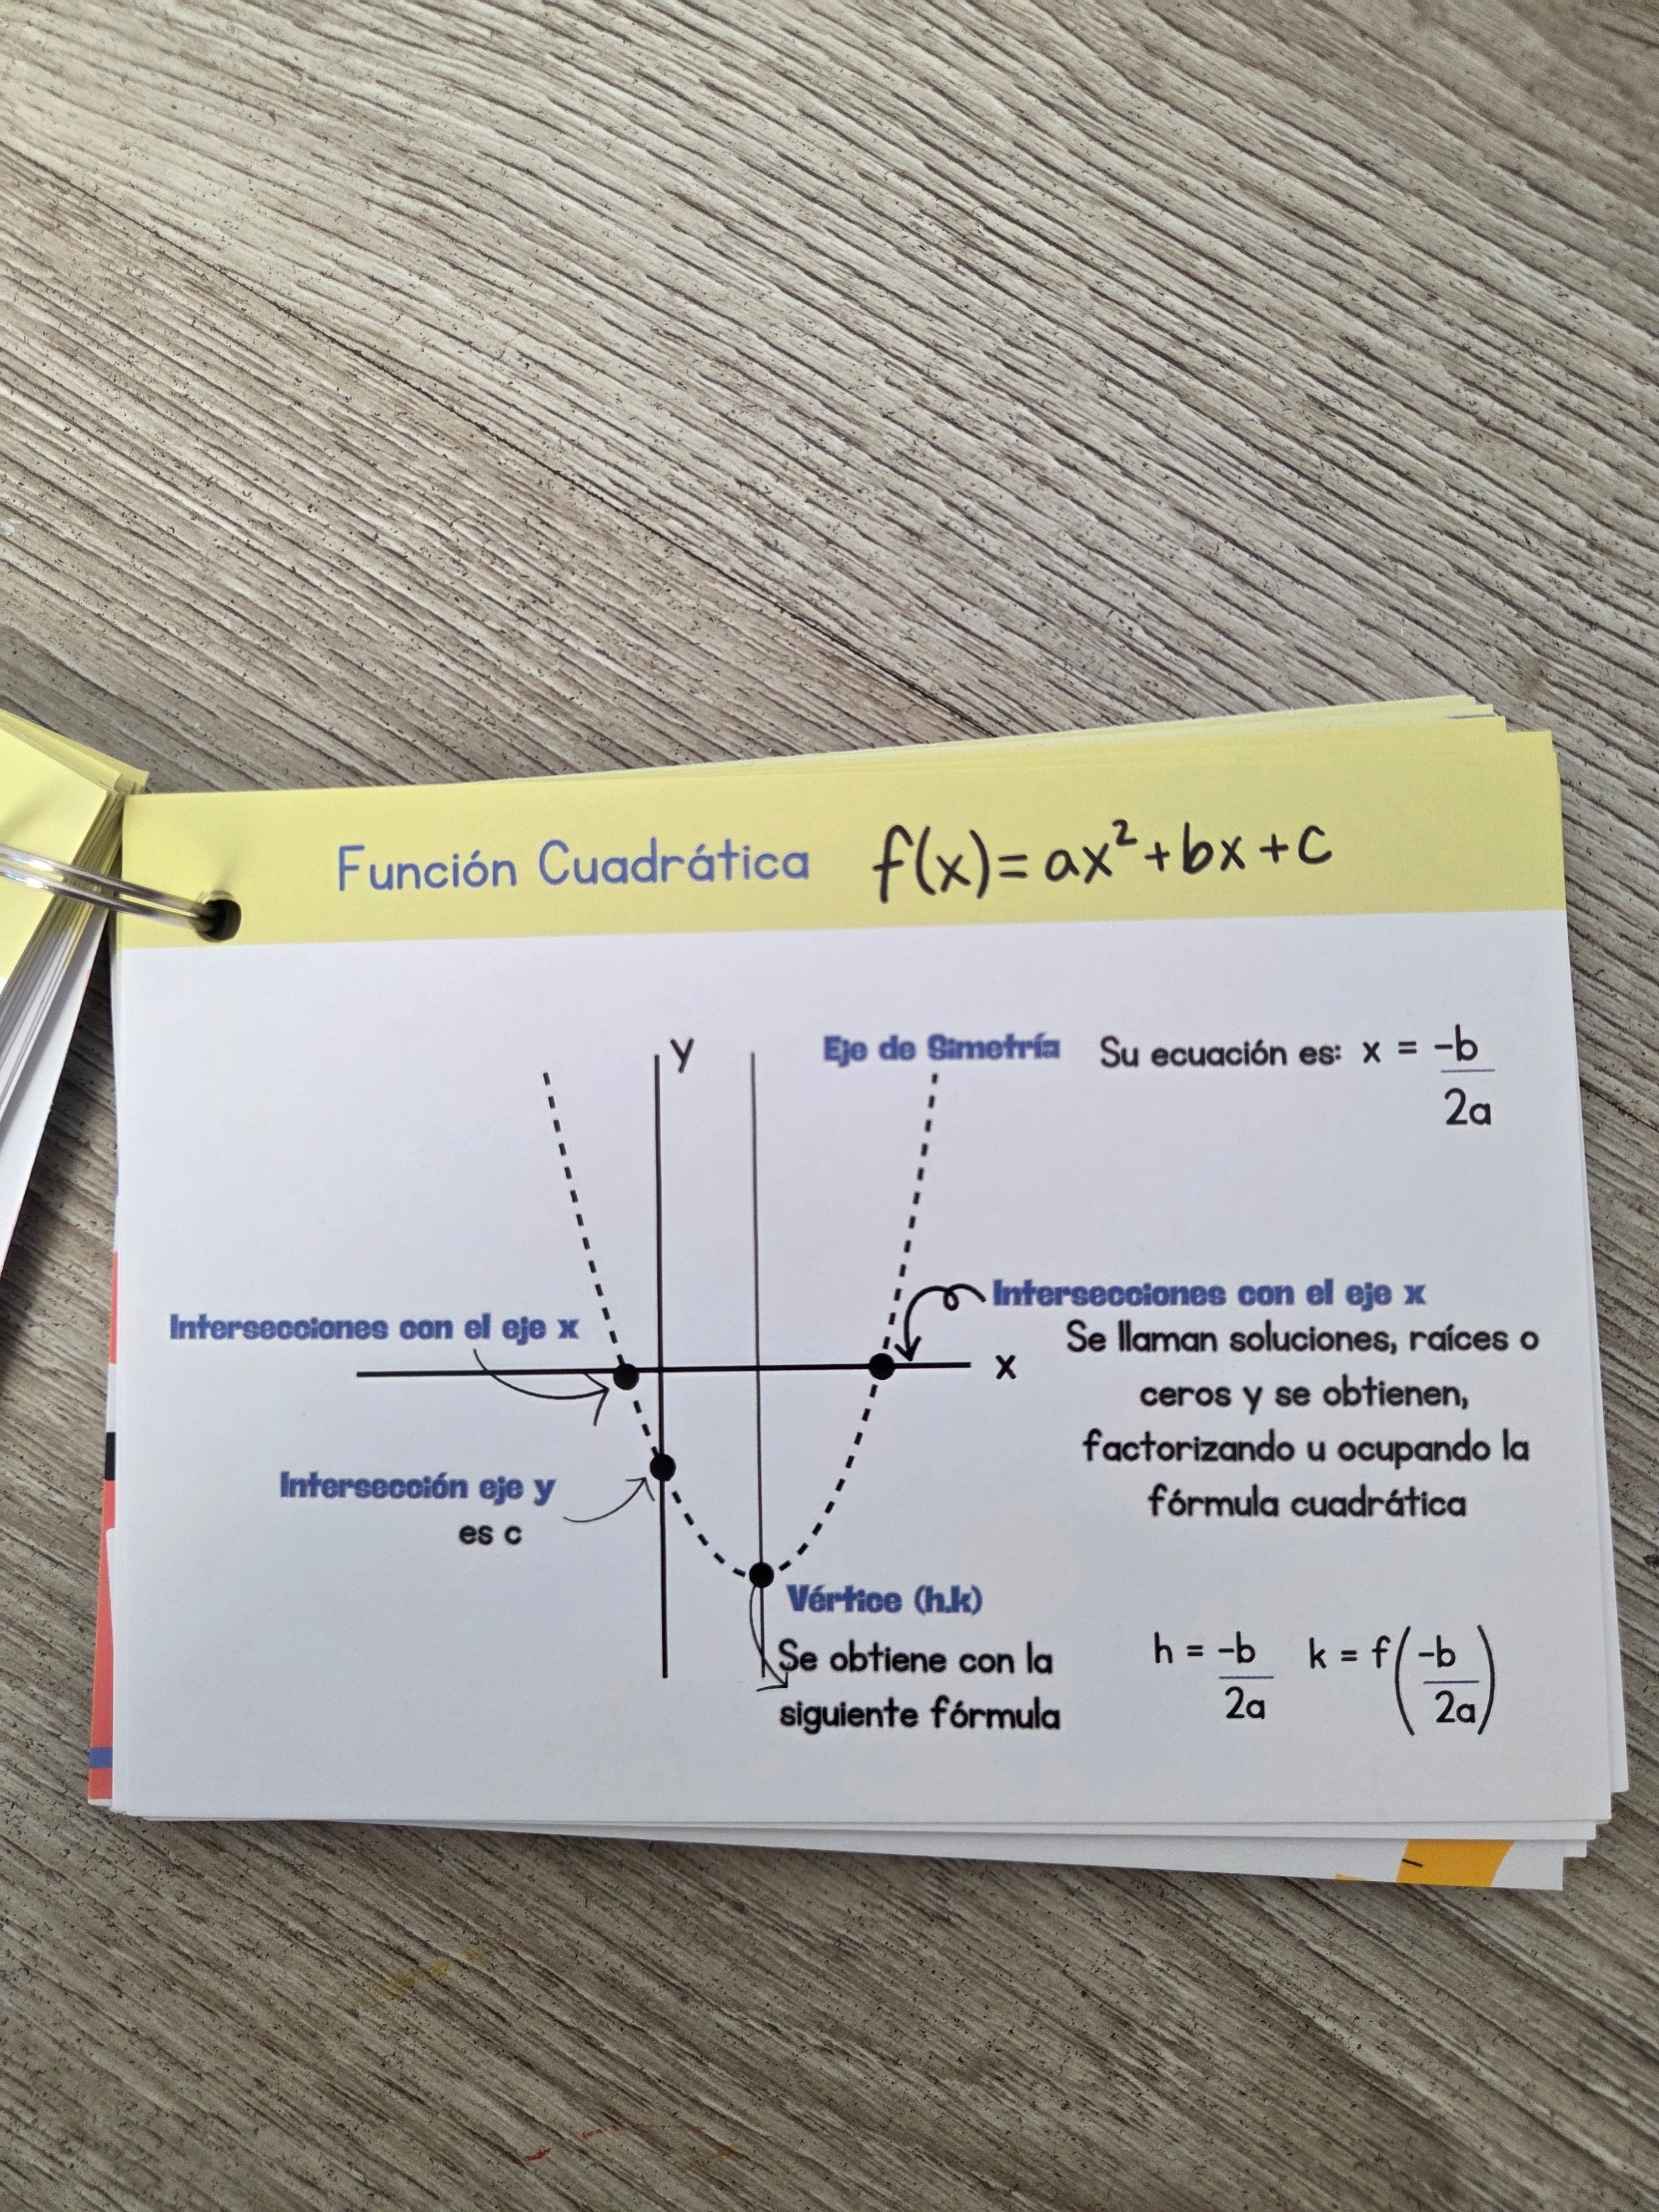 Función Cuadrática f(x)= ax²+bx+c
y
Eje de Simetría Su ecuación es: x = -b
2a
Intersecciones con el eje x
Intersecciones con el eje x
x
Se llaman soluciones, raíces o
ceros y se obtienen,
factorizando u ocupando la
fórmula cuadrática
Intersección eje y
es c
Vértice (h.k)
Se obtiene con la
siguiente fórmula
h = -b
2a
k = f(-b
2a)